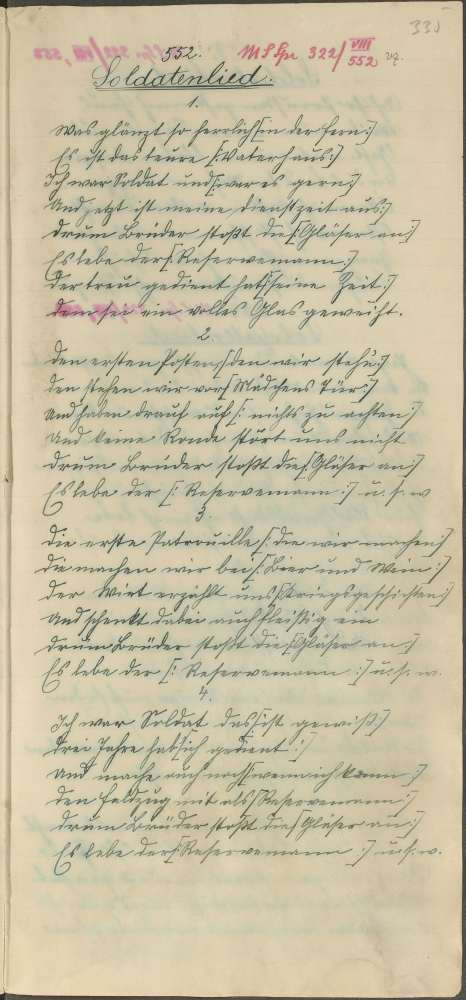 335
552. MS Spr 322/VIII 552
Soldatenlied.
1.
Was glänzt so herrlich [: in der Fern :]
Es ist das teure [: Vaterhaus :]
Ich war Soldat und [: war es gern :]
Und jetzt ist meine Dienstzeit aus :]
Drum Brüder stoßt die [: Gläser an :]
Es lebe der [: Reservemann :]
Der treu gedient hat [: seine Zeit :]
dem sei ein volles Glas geweiht.
2
Den ersten Posten [: den wir stehn :]
den stehen wir vor [: Mädchens Tür :]
Und haben drauf auf [: nichts zu achten :]
Und keine Ronde stört uns nicht
Drum Brüder stoßt die [: Gläser an :]
Es lebe der [: Reservemann :] u. s. w
3.
Die erste Patrouille [: die wir machen :]
Die machen wir bei [: Bier und Wein :]
Der Wirt erzählt uns [: Kriegsgeschichten :]
Und schenkt dabei auch fleißig ein
Drum Brüder stoßt die [: Gläser an :]
Es lebe der [: Reservemann :] u. s. w.
4.
Ich war Soldat das [: ist gewiß :]
Drei Jahre hab [: ich gedient :]
Und mache auch noch [: wenn ich kann :]
Den Feldzug mit als [: Reservemann :]
Drum Brüder stoßt die [: Gläser an :]
Es lebe der [: Reservemann :] u. s. w.